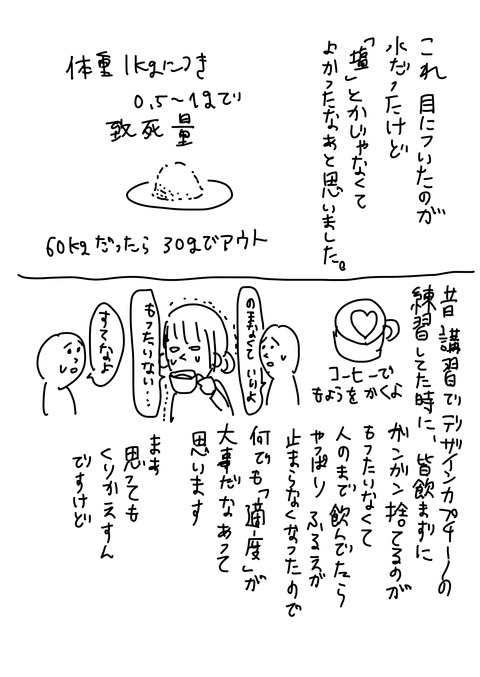 これ 目についたのが
水だったけど
「塩」とかじゃなくて
よかったなあと思いました。
体重1kgにつき
0.5〜1gで
致死量
60kgだったら 30gでアウト
昔、講習でデザインカプチーノの
練習してた時に、皆飲まずに
ガンガン捨てるのが
もったいなくて
人のまで飲んでたら
やっぱり ふるえが
止まらなくなったので
何でも「適度」が
大事だなあって
思います
コーヒーで
もようをかくよ
のまなくていいよ
もったいない…
すてなよ
まあ
思っても
くりかえすん
ですけど